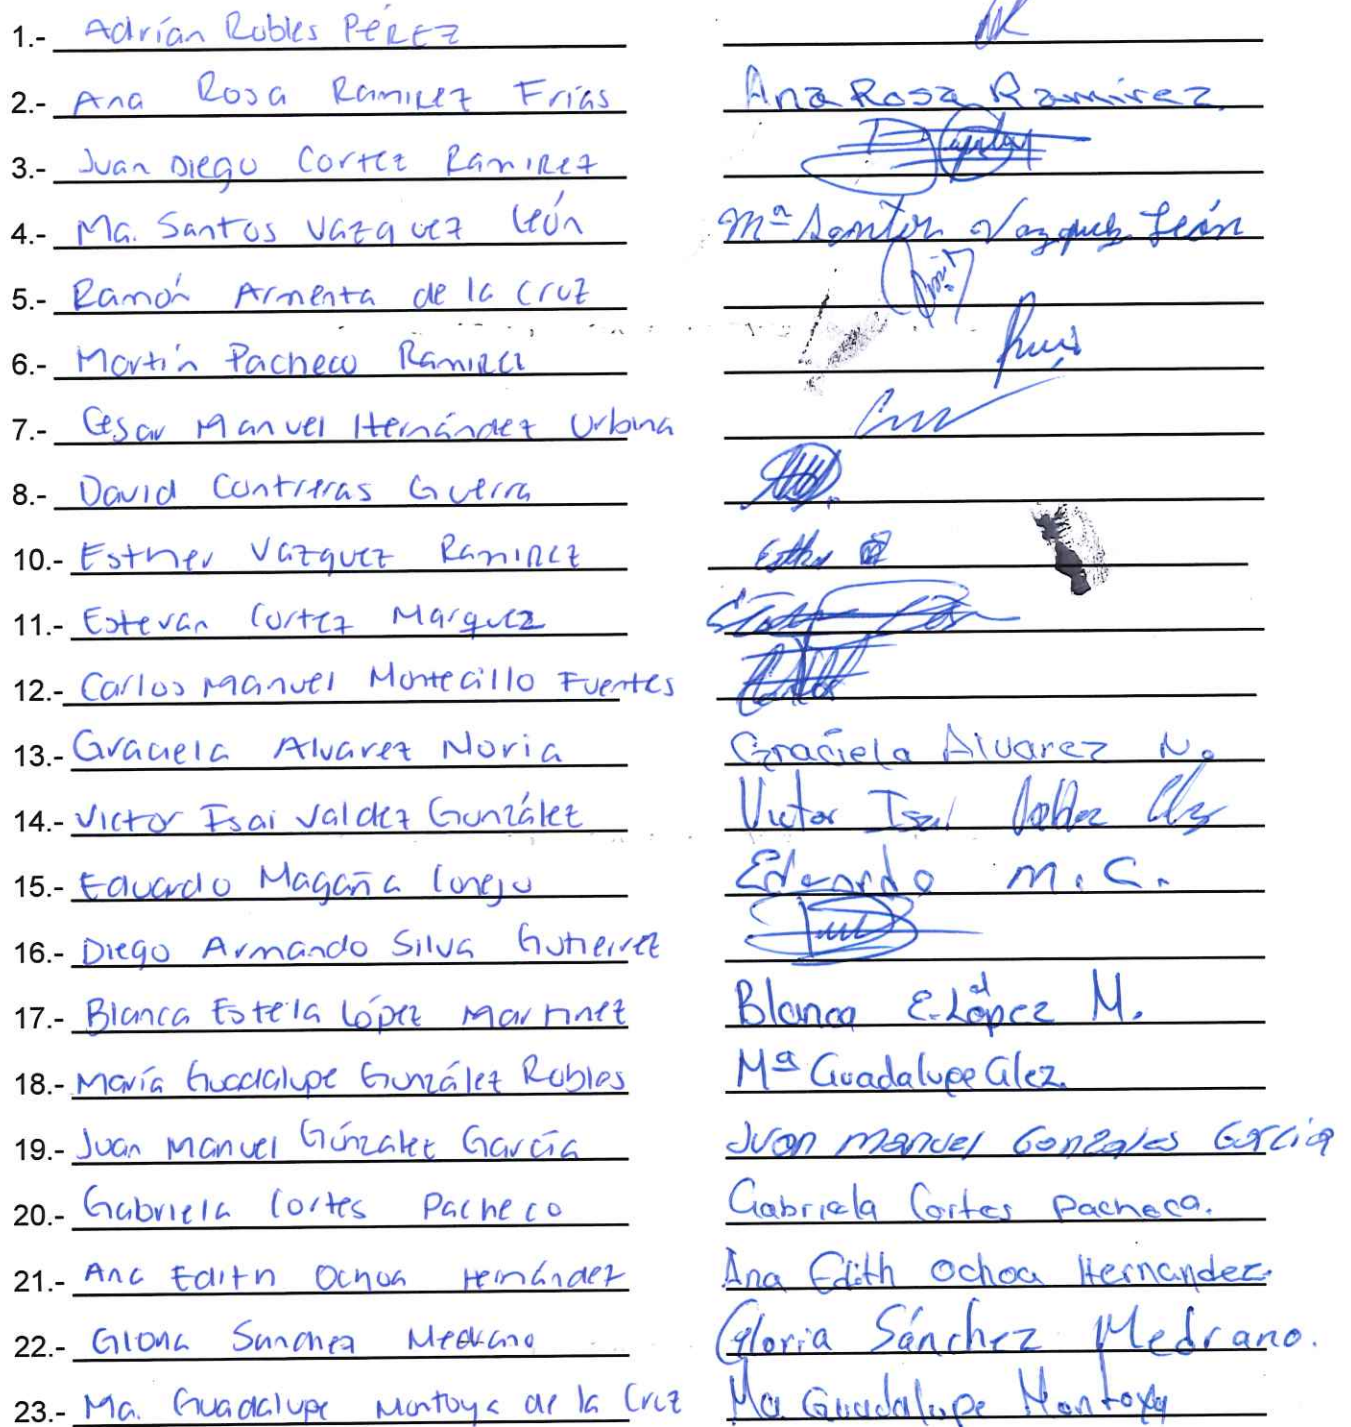 1.- Adrían Robles PÉREZ
2.- Ana Rosa Ramirez Frías Ana Rosa Ramirez
3.- Juan Diego Cortez Ramirez
4.- Ma. Santos Vazquez León Mª Santos Vazquez León
5.- Ramón Armenta de la Cruz
6.- Martín Pacheco Ramirez
7.- Cesar Manuel Hernández Urbina
8.- David Contreras Guerra
10.- Esther Vazquez Ramirez Esther
11.- Estevan Cortez Marquez
12.- Carlos Manuel Montecillo Fuentes
13.- Graciela Alvarez Noria Graciela Alvarez N.
14.- Victor Isai Valdez González Victor Isai
15.- Eduardo Magaña Conejo Eduardo M. C.
16.- Diego Armando Silva Gutierrez
17.- Blanca Estela López Martinez Blanca E. López M.
18.- María Guadalupe González Robles Mª Guadalupe Glez.
19.- Juan Manuel Gónzalez García Juan Manuel Gonzales Garcia
20.- Gabriela Cortes Pacheco Gabriela Cortes Pacheco.
21.- Ana Edith Ochoa Hernández Ana Edith Ochoa Hernandez.
22.- Gloria Sanchez Medrano Gloria Sánchez Medrano.
23.- Ma. Guadalupe Montoya de la Cruz Ma. Guadalupe Montoya